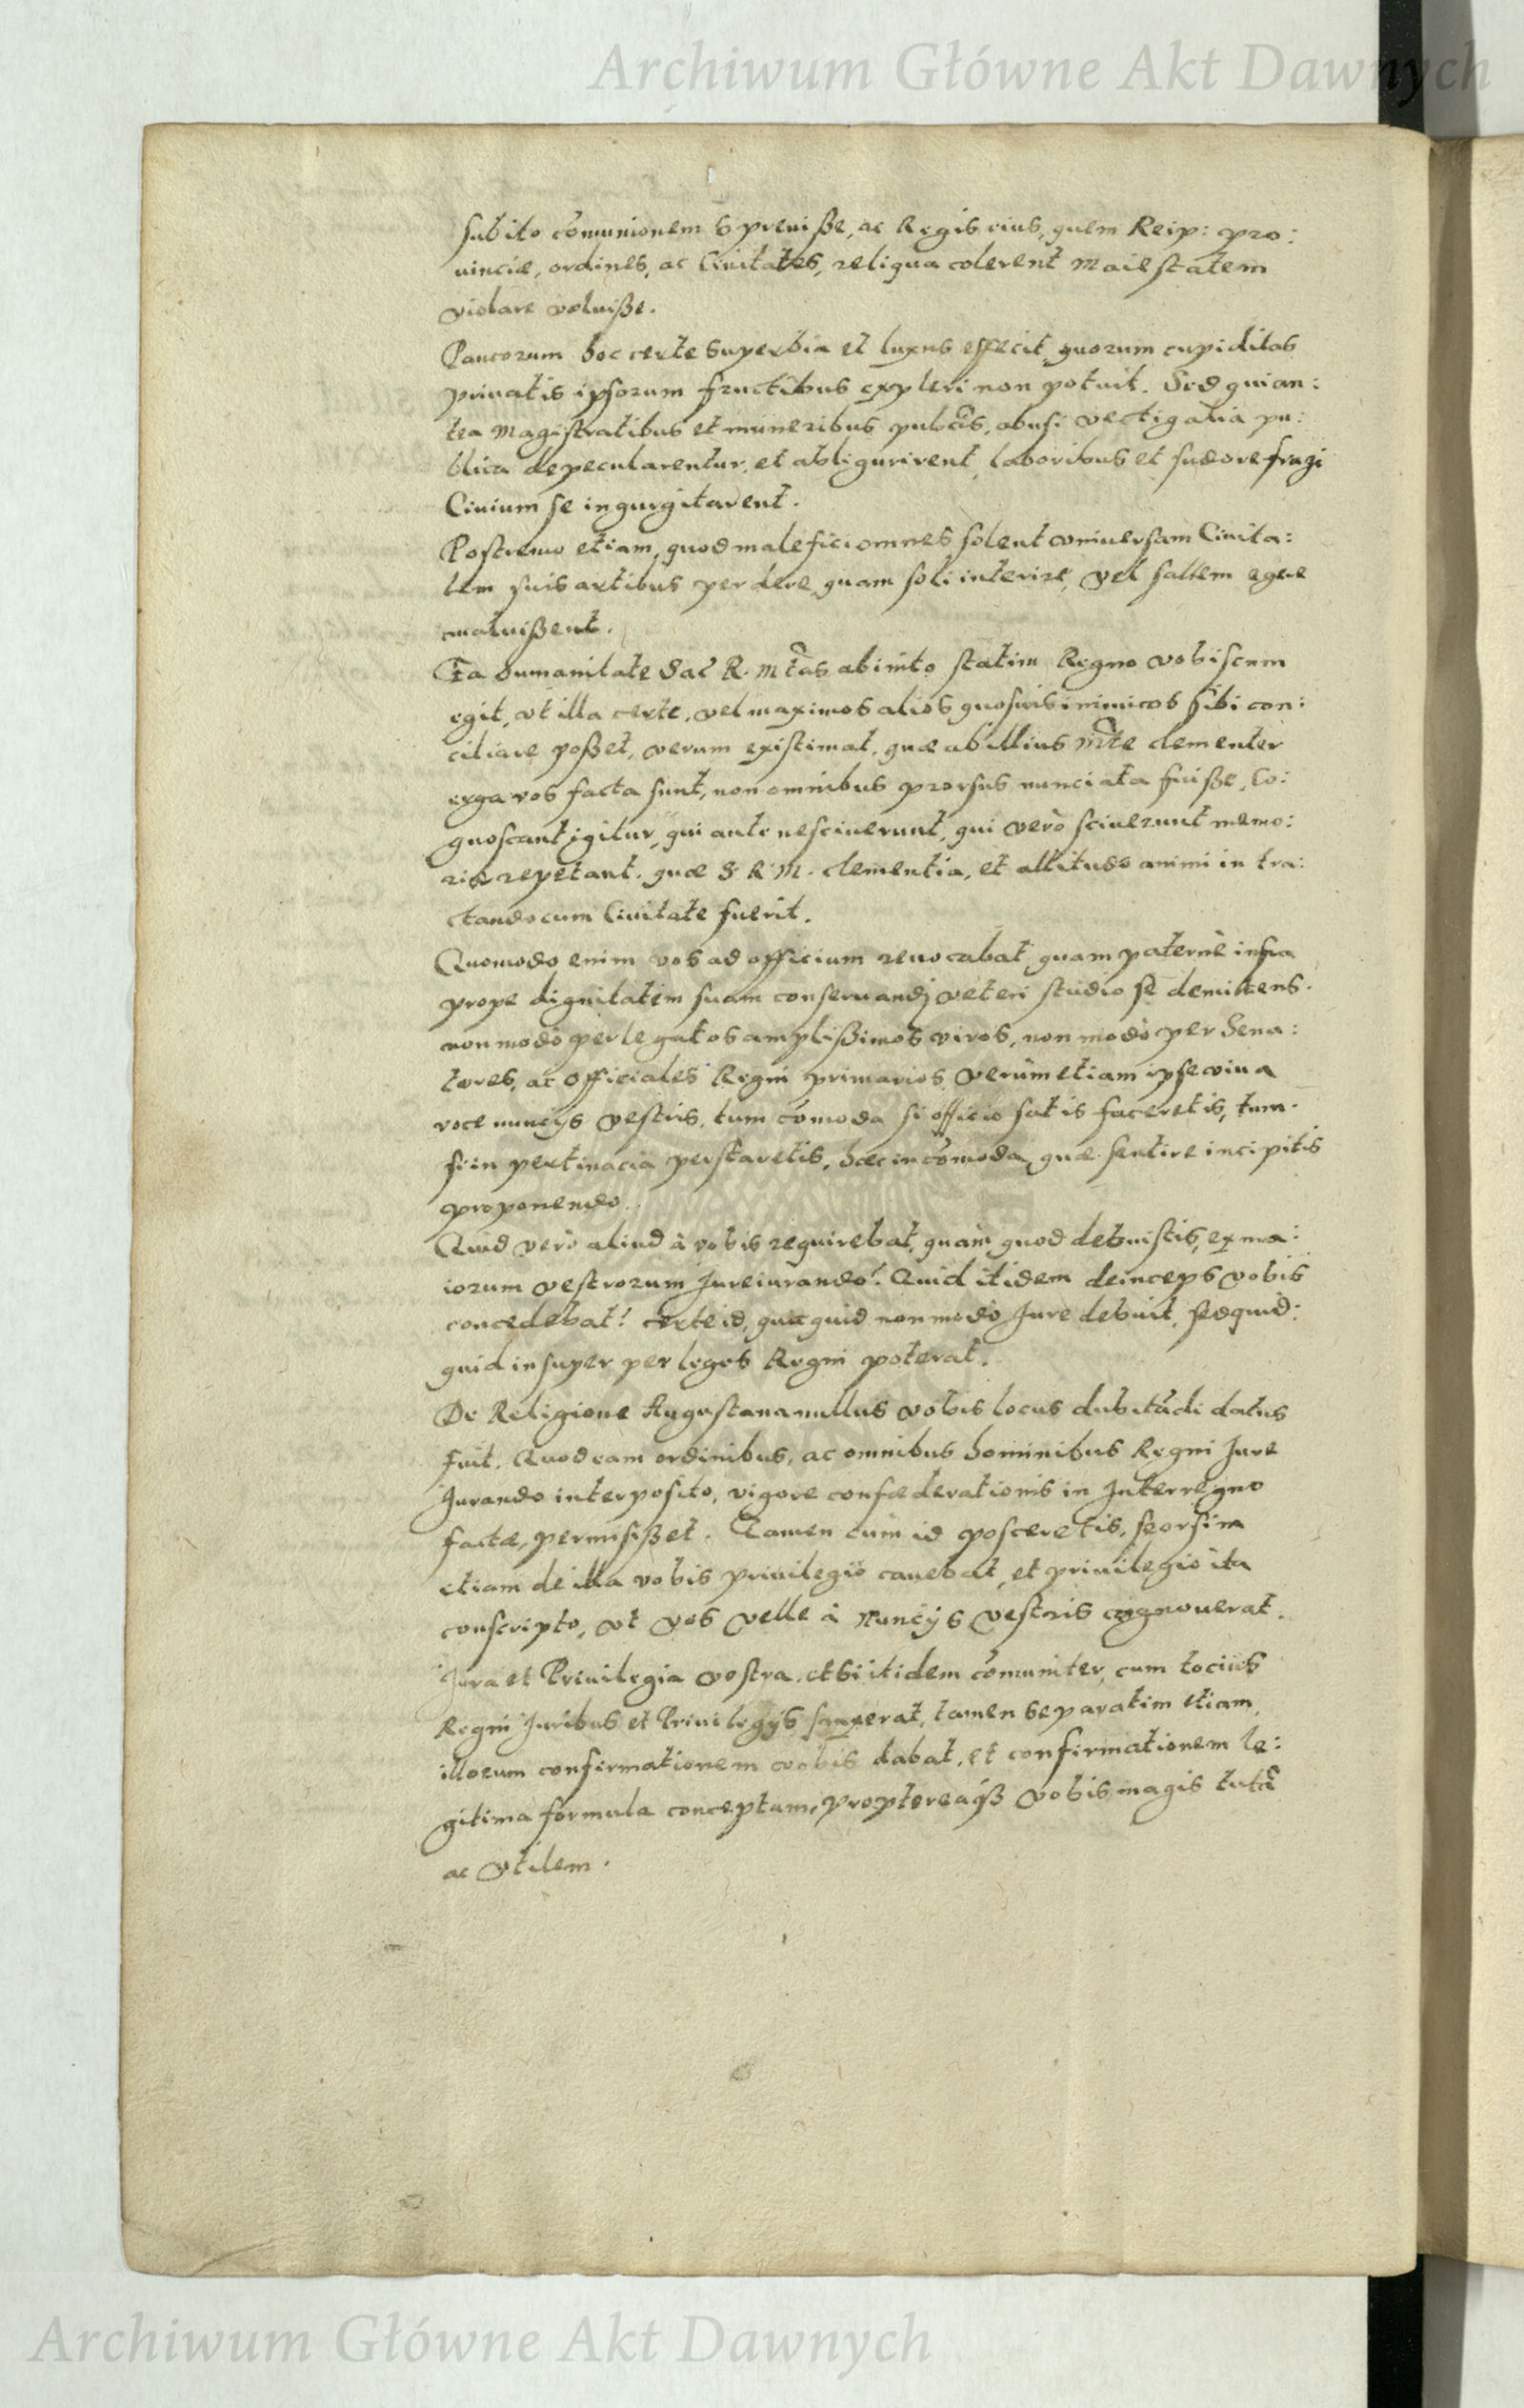 Archiwum Główne Akt Dawnych
subito com̃unionem spreuiße, ac Regis eius, quem Reip: pro:
uinciæ, ordines, ac Ciuitates, reliqua colerent Maiestatem
violare voluiße.
Paucorum hoc certe superbia et luxus effecit, quorum cupiditas
priuatis ipsorum fructibus expleri non potuit. Sed qui an:
tea Magistratibus et muneribus pub͠cis, abusi vectigalia pu:
blica depecularentur, et abligurirent, laboribus et sudore frugi
Ciuium se ingurgitarent.
Postremo etiam, quod malefici omnes solent vniuersam Ciuita:
tem suis artibus perdere, quam soli interire, vel saltem egere
maluißent.
Ea humanitate Sac̃ R. Mtas ab inito statim Regno vobiscum
egit, vt illa certe, vel maximos alios quosuis inimicos sibi con:
ciliare poßet, verum existimat, quæ ab illius Mte clementer
erga vos facta sunt, non omnibus prorsus nunciata fuiße, Co:
gnoscant igitur, qui ante nesciuerunt, qui verò sciuerunt memo:
ria repetant. quæ S. R. M. clementia, et altitudo animi in tra:
ctando cum Ciuitate fuerit.
Quomodo enim vos ad officium reuocabat, quam paternè infra
prope dignitatem suam conseruandj veteri studio se demittens.
non modo per legatos amplißimos viros, non modò per Sena:
tores, ac Officiales Regni primarios, verùm etiam ipse viua
voce nuncijs vestris, tum com̃oda si officio satis faceretis, tum.
si in pertinacia perstaretis, hæc incom̃oda, quæ sentire incipitis
proponendo.
Quid verò aliud à vobis requirebat, quàm quod debuistis, ex ma:
iorum vestrorum Jureiurando? Quid itidem deinceps vobis
concedebat? certe id, quicquid non modo Jure debuit, sed quid:
quid insuper per leges Regni poterat.
De Religione Augustana nullus vobis locus dubitãdi datus
fuit. Quod eam ordinibus, ac omnibus hominibus Regni Jure
Jurando interposito, vigore confœderationis in Interregno
factæ, permisißet. Tamen cùm id posceretis, seorsim
etiam de illa vobis priuilegio cauebat, et priuilegio ita
conscripto, vt vos velle à Nuncijs vestris cognouerat.
Jura et Priuilegia vestra. etsi itidem com̃uniter, cum tocius
Regni Juribus et Priuilegijs sanxerat, tamen separatim etiam,
illorum confirmationem vobis dabat, et confirmationem le:
gitima formula conceptam, proptereaq́ß vobis magis tutã
ac vtilem.
Archiwum Główne Akt Dawnych